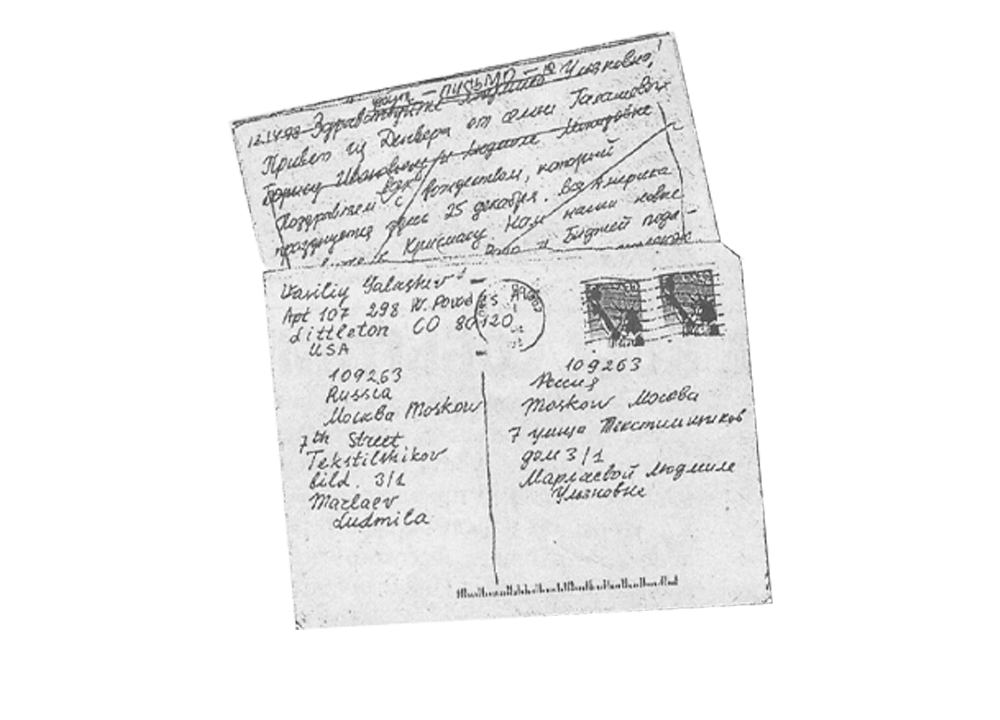 письмо
Здравствуйте Людмила Ульяновна!
Привет из Денвера от семьи Галашовых
Борису Ивановичу и Людмиле Макаровне
Поздравляем Вас с Рождеством, который
празднуется здесь 25 декабря. Вся Америка
к Крисмасу. Нам наши новые
и Биджей пода-
Vasiliy Galashev
Apt 107 298 W.
Littleton CO 80120
USA
109263
Russia
Москва Moskow
7th Street
Tekstilshikov
bild. 3/1
Marlaev
Ludmila
109263
Россия
Moskow Москва
7 улица Текстильщиков
дом 3/1
Марлаевой Людмиле
Ульяновне